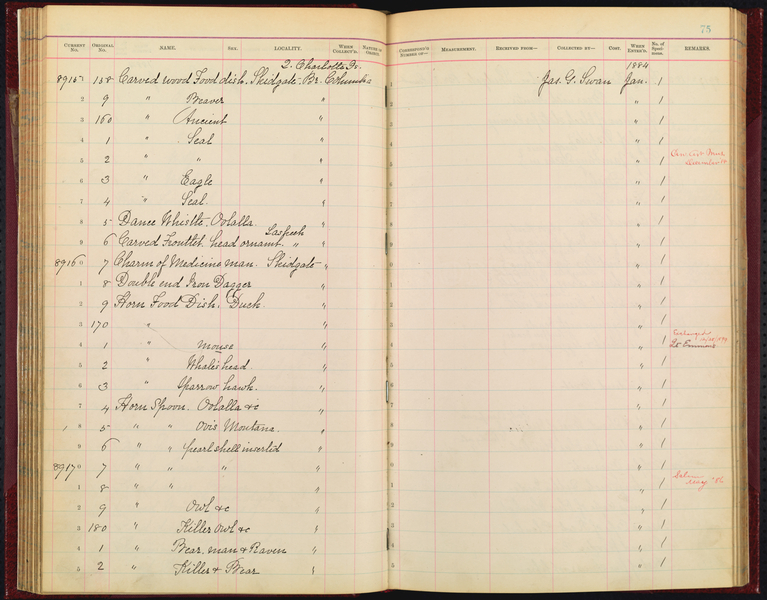 75
CURRENT No. ORIGINAL No. NAME. SEX. LOCALITY. WHEN COLLECT'D. NATURE OF OBJECT. CORRESPOND'G NUMBER OF— MEASUREMENT. RECEIVED FROM— COLLECTED BY— COST. WHEN ENTER'D. No. of Specimens. REMARKS.
Q. Charlotte Is. 1884
8915 158 Carved wood Food dish. Skidgate. Br. Columbia Jas. G. Swan Jan. 1
2 9 " Beaver " " 1
3 160 " Ancient " " 1
4 1 " Seal " " 1
5 2 " " " " 1
6 3 " Eagle " " 1
7 4 " Seal. " " 1
8 5 Dance Whistle. Oolalla " " 1
9 6 Carved Frontlet. head ornamt. " " 1
89160 7 Charm of Medicine man. Skidgate " 1
1 8 Double end Iron Dagger " " 1
2 9 Horn Food Dish. Duck " " 1
3 170 " " " 1
4 1 " Mouse " " 1 Exchanged Lt. Emmons
5 2 " Whale's head. " " 1
6 3 " Sparrow hawk. " " 1
7 4 Horn Spoon. Oolalla &c " " 1
8 5 " " Ovis Montana. " " 1
9 6 " " pearl shell inserted " " 1
89170 7 " " " " " 1
1 8 " " " " 1
2 9 " Owl &c " " 1
3 180 " Killer Owl &c " " 1
4 1 " Bear. man & Raven " " 1
5 2 " Killer & Bear " " 1